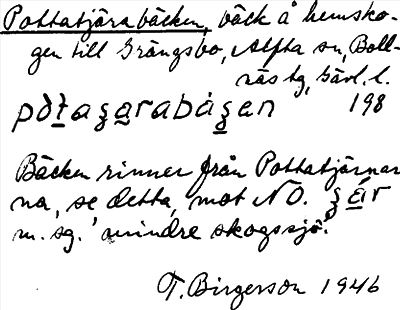 Pottatjärabäcken, bäck å hemsko-
gen till Grängsbo, Alfta sn, Boll-
näs tg, Gävl. l.
pòt̠aʂa̠rabáʂen 198
Bäcken rinner från Pottatjärnar
na, se detta, mot NO. ʂä́r
m. sg. 'mindre skogssjö.'
T. Birgerson 1946